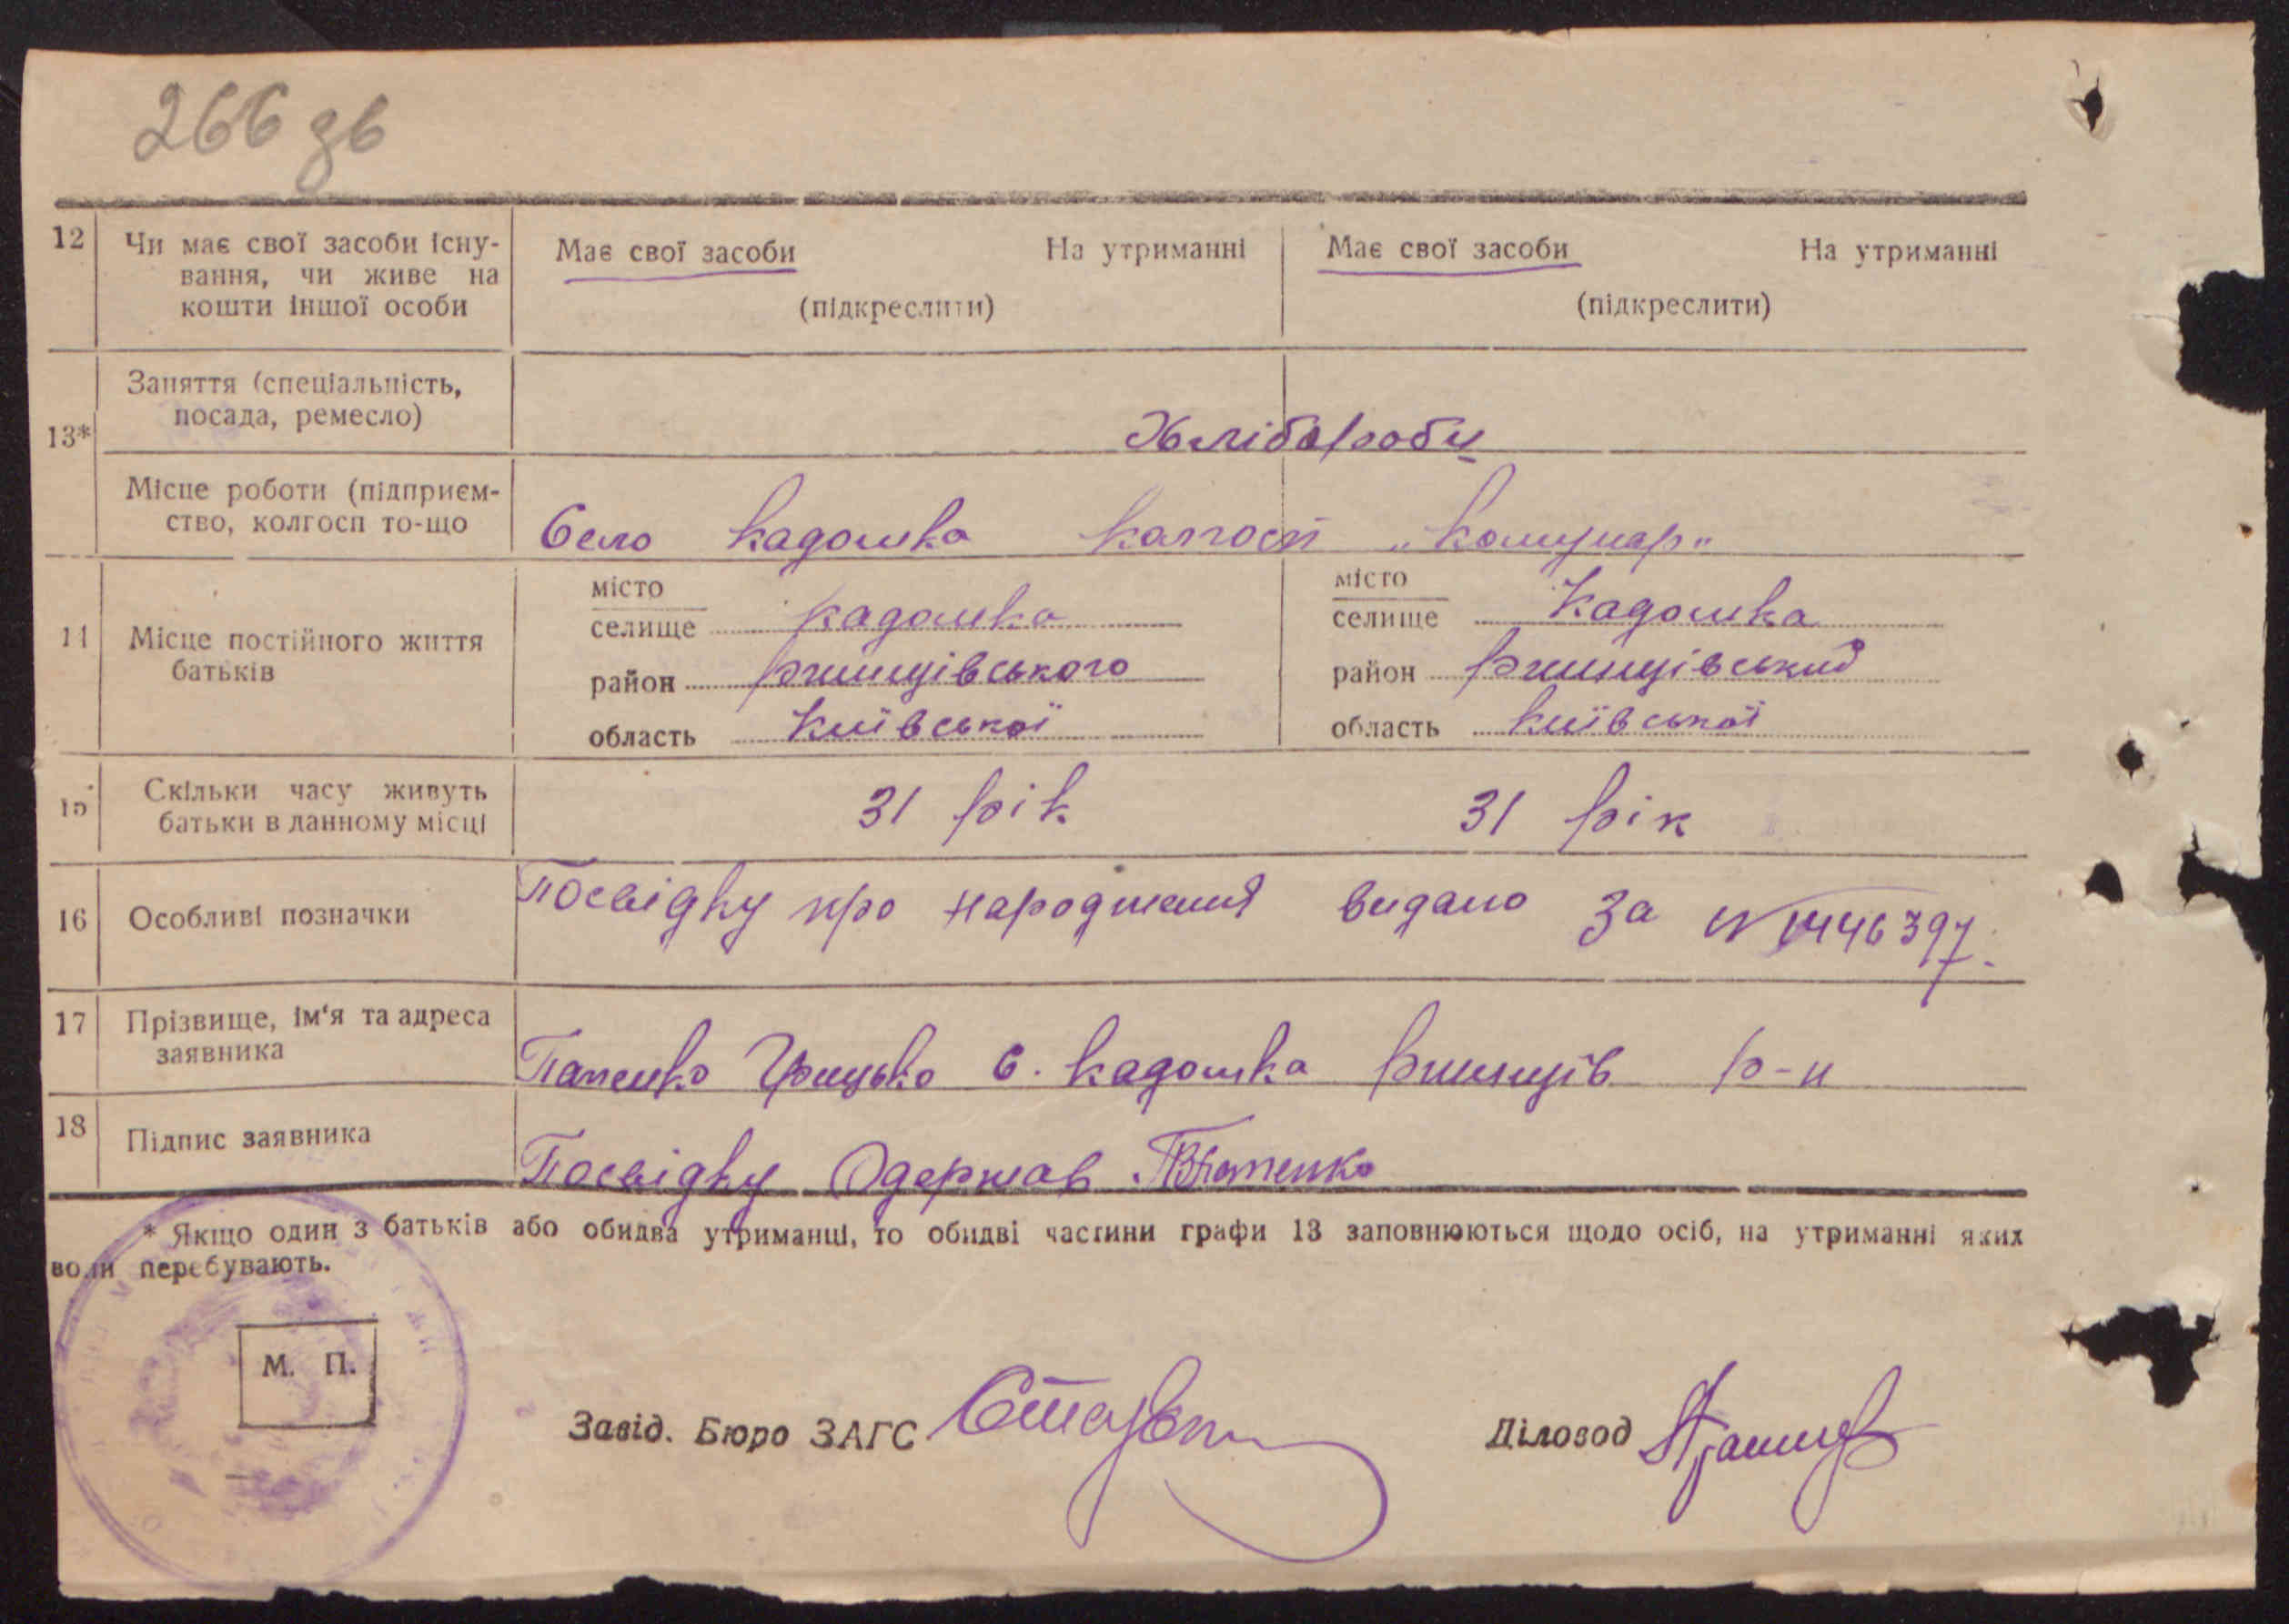 266 зв
12 Чи має свої засоби існу-
вання, чи живе на
кошти іншої особи
Має свої засоби На утриманні
(підкреслити)
Має свої засоби На утриманні
(підкреслити)
13* Заняття (спеціальність,
посада, ремесло)
Хлібороби
Місце роботи (підприєм-
ство, колгосп то-що
Село Кадомка Колгосп „Комунар"
14 Місце постійного життя
батьків
місто
селище Кадомка
район Ржищівського
область Київської
місто
селище Кадомка
район Ржищівський
область Київської
15 Скільки часу живуть
батьки в данному місці
31 рік 31 рік
16 Особливі позначки
Посвідку про народження видано за №
17 Прізвище, ім'я та адреса
заявника
Грицько с. Кадомка Ржищів р-н
18 Підпис заявника
Посвідку Одержав
* Якщо один з батьків або обидва утриманці, то обидві частини графи 13 заповнюються щодо осіб, на утриманні яких
вони перебувають.
М. П.
Завід. Бюро ЗАГС
Діловод